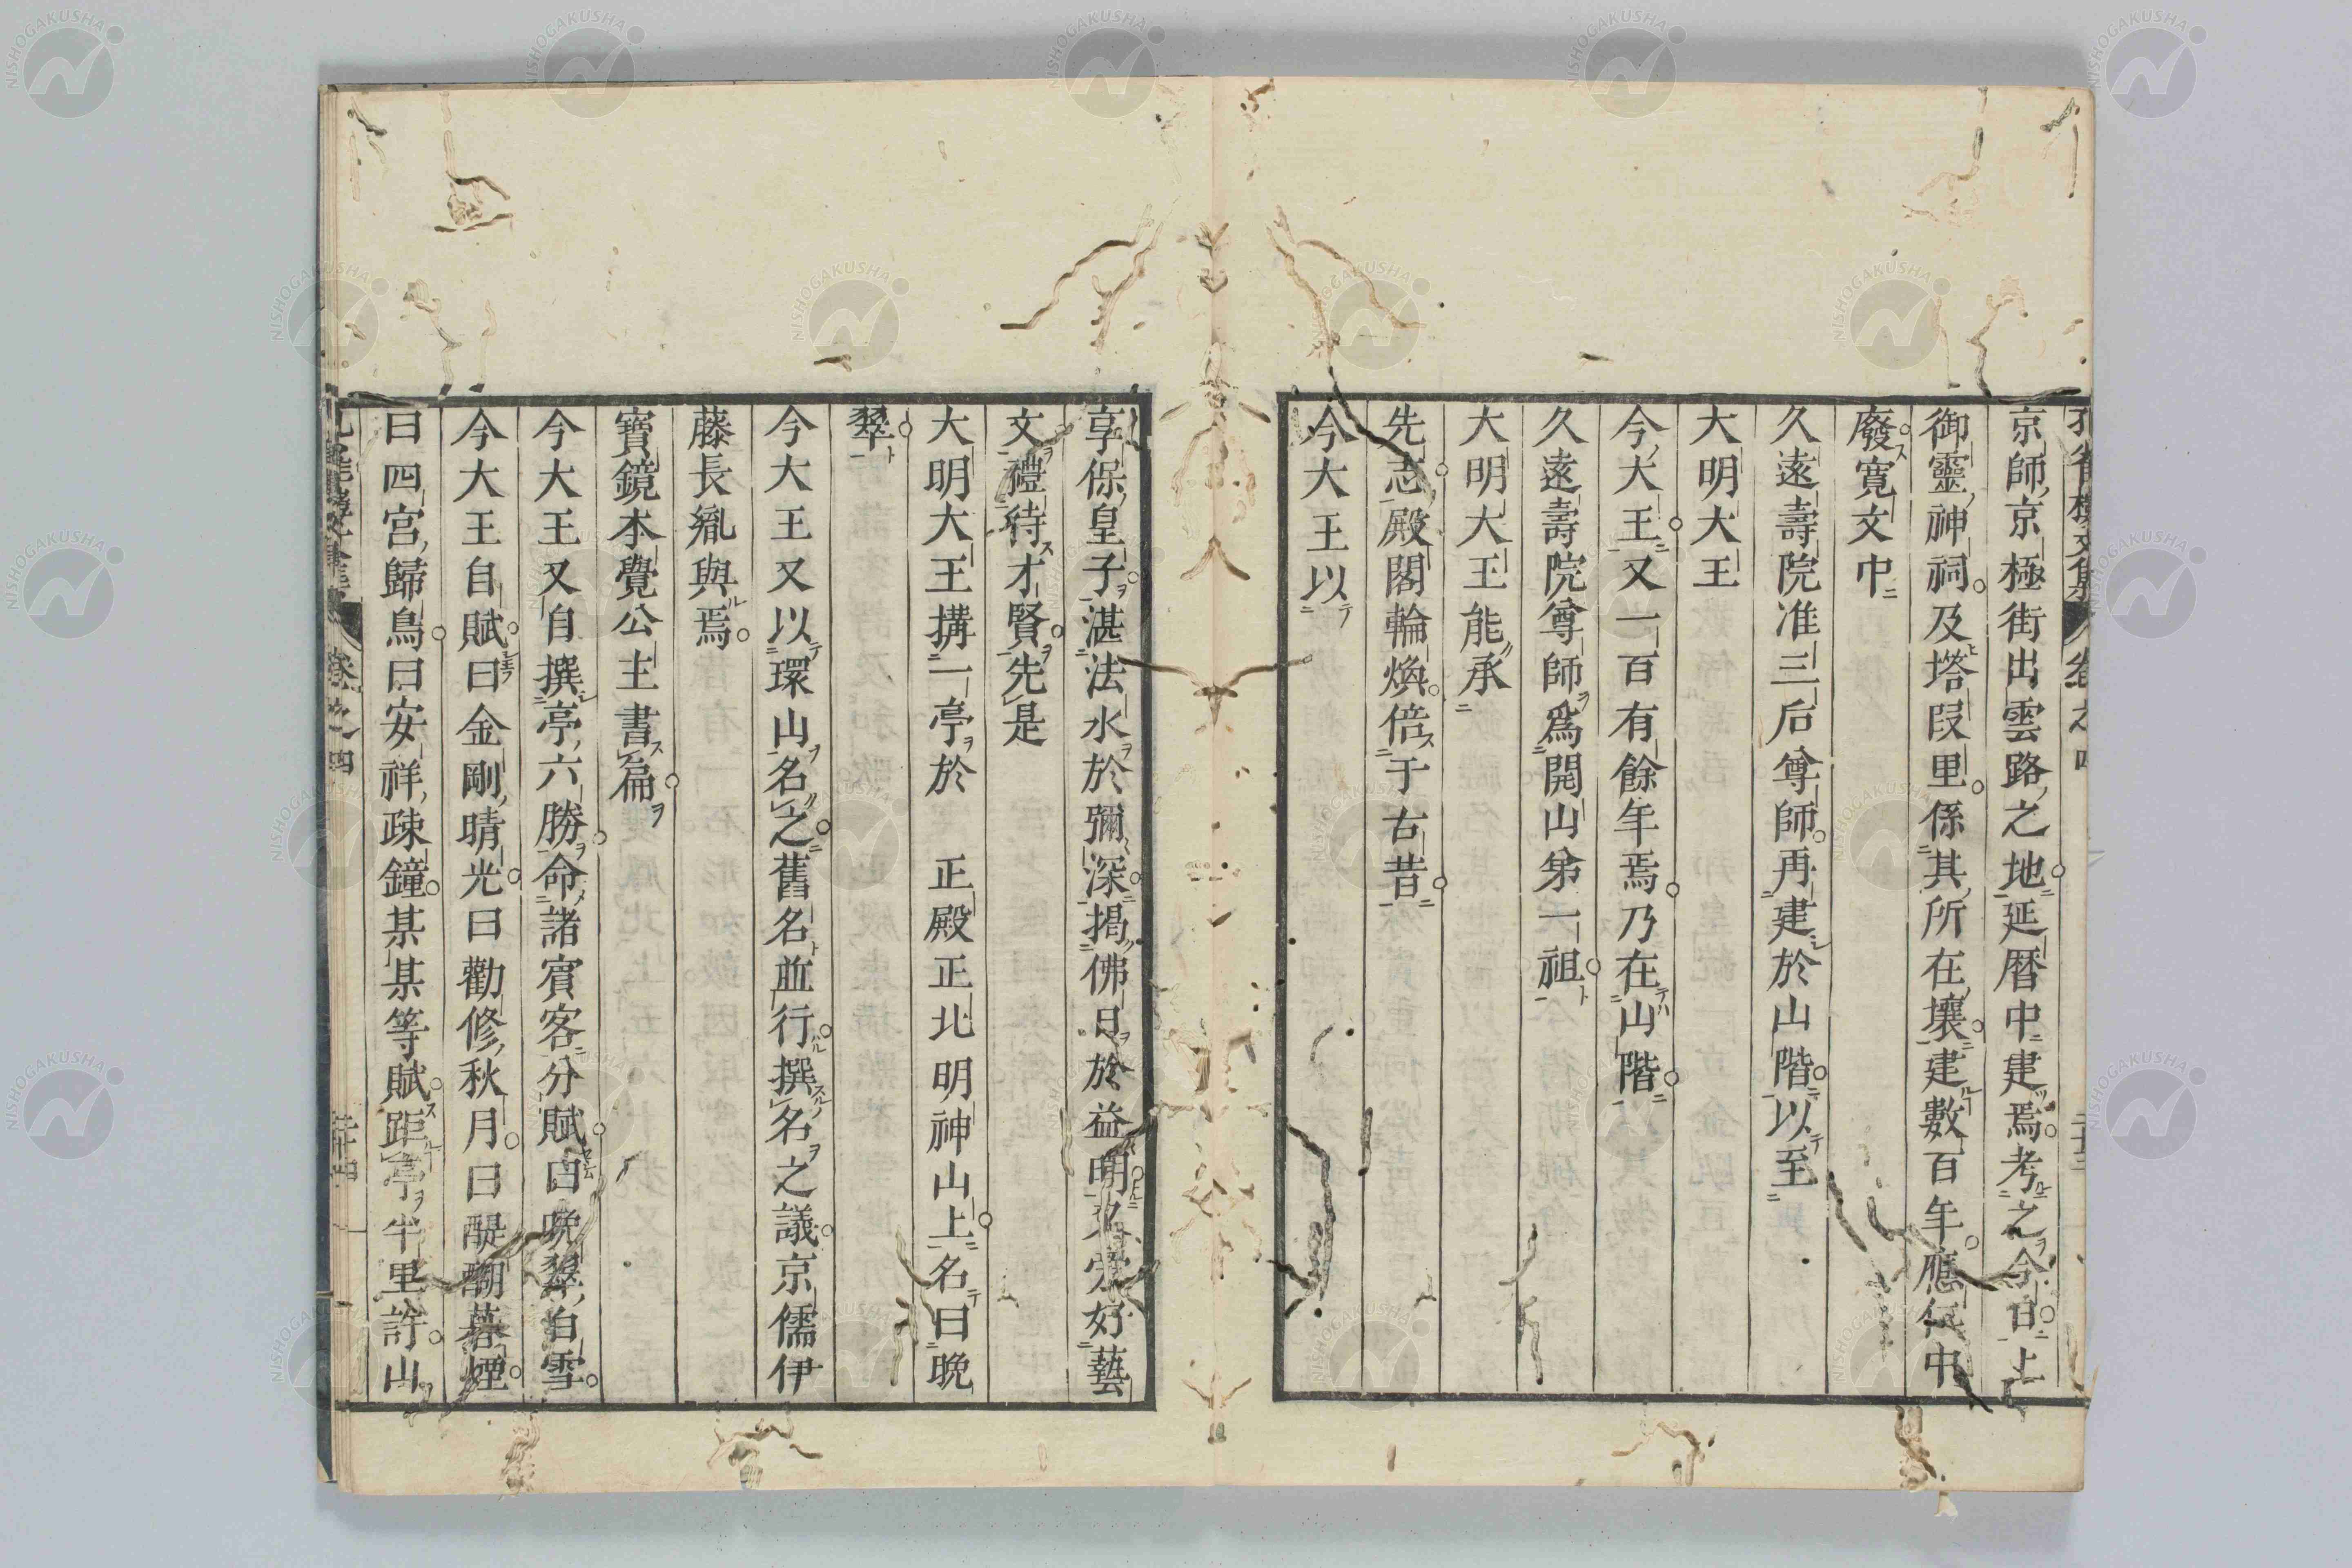 京師京極街出雲路之地延暦中建焉考之今曰上
御靈神祠及塔段里係其所在壤建數百年應仁中
廢寛文中
久遠壽院准三后尊師再建於山階以至
大明大王
今大王又一百有餘年焉乃在山階
久遠壽院尊師爲開山第一祖
大明大王能承
先志殿閣輪煥倍于古昔
今大王以
享保皇子湛法水於彌深揭佛日於益明又愛好藝
文禮待才賢先是
大明大王搆一亭於 正殿正北明神山上名曰晩
翠
今大王又以環山名之舊名並行撰名之議京儒伊
藤長胤與焉
寶鏡本覺公主書扁
今大王又自撰亭六勝命諸賓客分賦曰晩翠白雪
今大王自賦曰金剛晴光曰勸修秋月曰醍醐暮煙
曰四宮歸鳥曰安祥疎鐘某某等賦距亭半里許山
卷之四
NISHOGAKUSHA